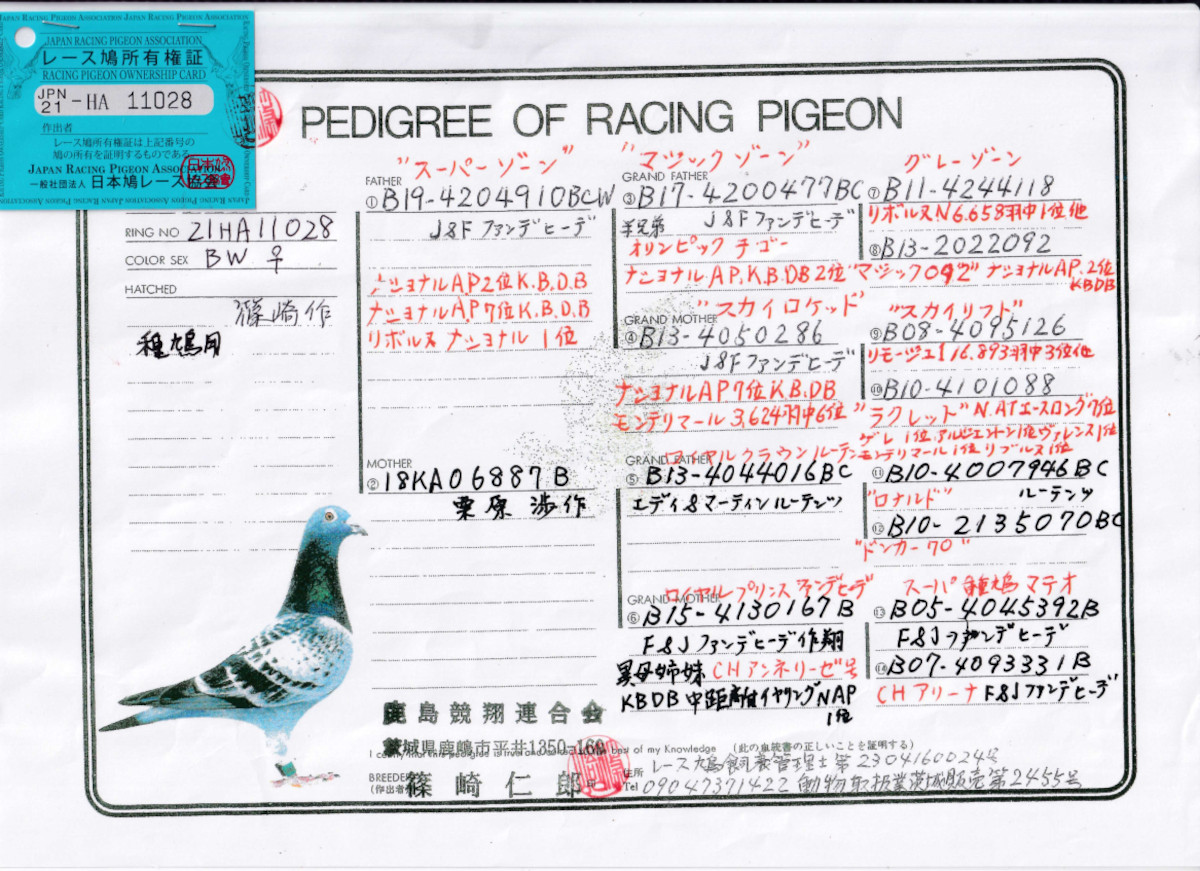 JAPAN RACING PIGEON ASSOCIATION
レース鳩所有権証
RACING PIGEON OWNERSHIP CARD
JPN
21 -HA 11028
作出者
レース鳩所有権証は上記番号の
鳩の所有を証明するものである
JAPAN RACING PIGEON ASSOCIATION
一般社団法人 日本鳩レース協会
PEDIGREE OF RACING PIGEON
RING NO 21HA11028
COLOR SEX BW ♀
HATCHED
篠崎作
種鳩用
"スーパーゾーン"
FATHER
①B19-4204910BCW
J&Fファンデヒーデ
ナショナルAP2位K.B.D.B
ナショナルAP7位K.B.D.B
リボルヌナショナル1位
MOTHER
②18KA06887B
栗原渉作
"マジックゾーン"
GRAND FATHER
③B17-4200477BC
J&Fファンデヒーデ
オリンピックチゴー
ナショナルAP.K.B.DB2位
"スカイロケット"
GRAND MOTHER
④B13-4050286
J&Fファンデヒーデ
ナショナルAP7位KB.DB
モンテリマール3,624羽中6位
ロイヤルクラウンルーテン
GRAND FATHER
⑤B13-4044016BC
エディ&マーティンルーテンツ
ロイヤルプリンスファンデヒーデ
GRAND MOTHER
⑥B15-4130167B
F&Jファンデヒーデ作翔
異母姉妹CHアンネリーゼ号
KBDB中距離イヤリングNAP
1位
グレーゾーン
⑦B11-4244118
リボルヌN6.658羽中1位他
⑧B13-2022092
"マジック092"ナショナルAP.2位
KBDB
"スカイリフト"
⑨B08-4095126
リモージュI16.893羽中3位他
⑩B10-4101088
"ラクレット"N.ATエースロング7位
ゲレ1位アルジェントン1位ヴァレンス1位
モンテリマール1位リブルヌ1位
⑪B10-4007946BC
"ロナルド" ルーテンツ
⑫B10-2135070BC
"ドンカー70"
スーパー種鳩マテオ
⑬B05-4045392B
F&Jファンデヒーデ
⑭B07-4093331B
CHアリーナF&Jファンデヒーデ
鹿島競翔連合会
茨城県鹿嶋市平井1350-160
I certify that this pedigree is true and best of my Knowledge (此の血統書の正しいことを証明する)
BREEDER
(作出者) 篠崎仁郎
住所 レース鳩飼養管理士第2304160024号
Tel 09047371422 動物取扱業茨城販売第2455号